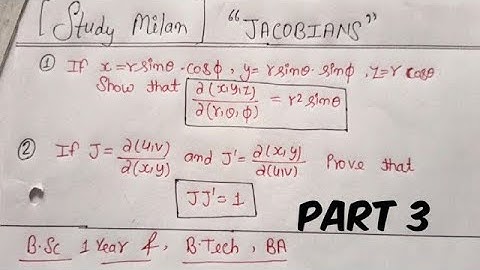 [Study Milan] "JACOBIANS"
① If x=rsinθ.cosϕ, y=rsinθ.sinϕ, z=r cosθ
Show that ∂(x,y,z)/∂(r,θ,ϕ) = r² sinθ
② If J=∂(u,v)/∂(x,y) and J'=∂(x,y)/∂(u,v) Prove that
JJ'=1
PART 3
B.Sc 1 Year &, B.Tech, BA